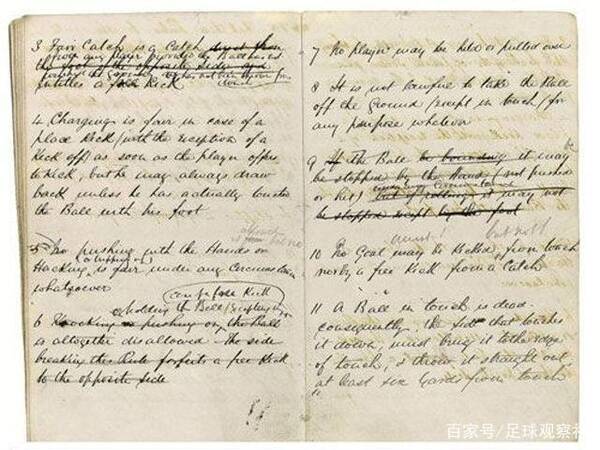 3 Fair Catch is a Catch
from any player provided the Ball has not
the foot of the opposite side and
entitles a free Kick
4 Charging is fair in case of a
place Kick (with the exception of a
Kick off) as soon as the player offers
to Kick, but he may always draw
back unless he has actually touched
the Ball with his foot
5 No pushing with the Hands or
Hacking is fair under any circumstances
whatsoever
holding the Ball
6 Knocking or pushing on the Ball
is altogether disallowed The side
breaking the Rule forfeits a free Kick
to the opposite side
7 No player may be held or pulled over
8 It is not lawful to take the Ball
off the Ground (except in touch) for
any purpose whatever
9 If The Ball be bounding it may be
be stopped by the Hand (not pushed
or hit) but if rolling it may not
be stopped except by the foot
10 No Goal may be Kicked from touch
nor by a free Kick from a Catch
11 A Ball in touch is dead
consequently the side that touches
it down, must bring it to the edge
of touch, & throw it straight out
at least six yards from touch
百家号/足球观察